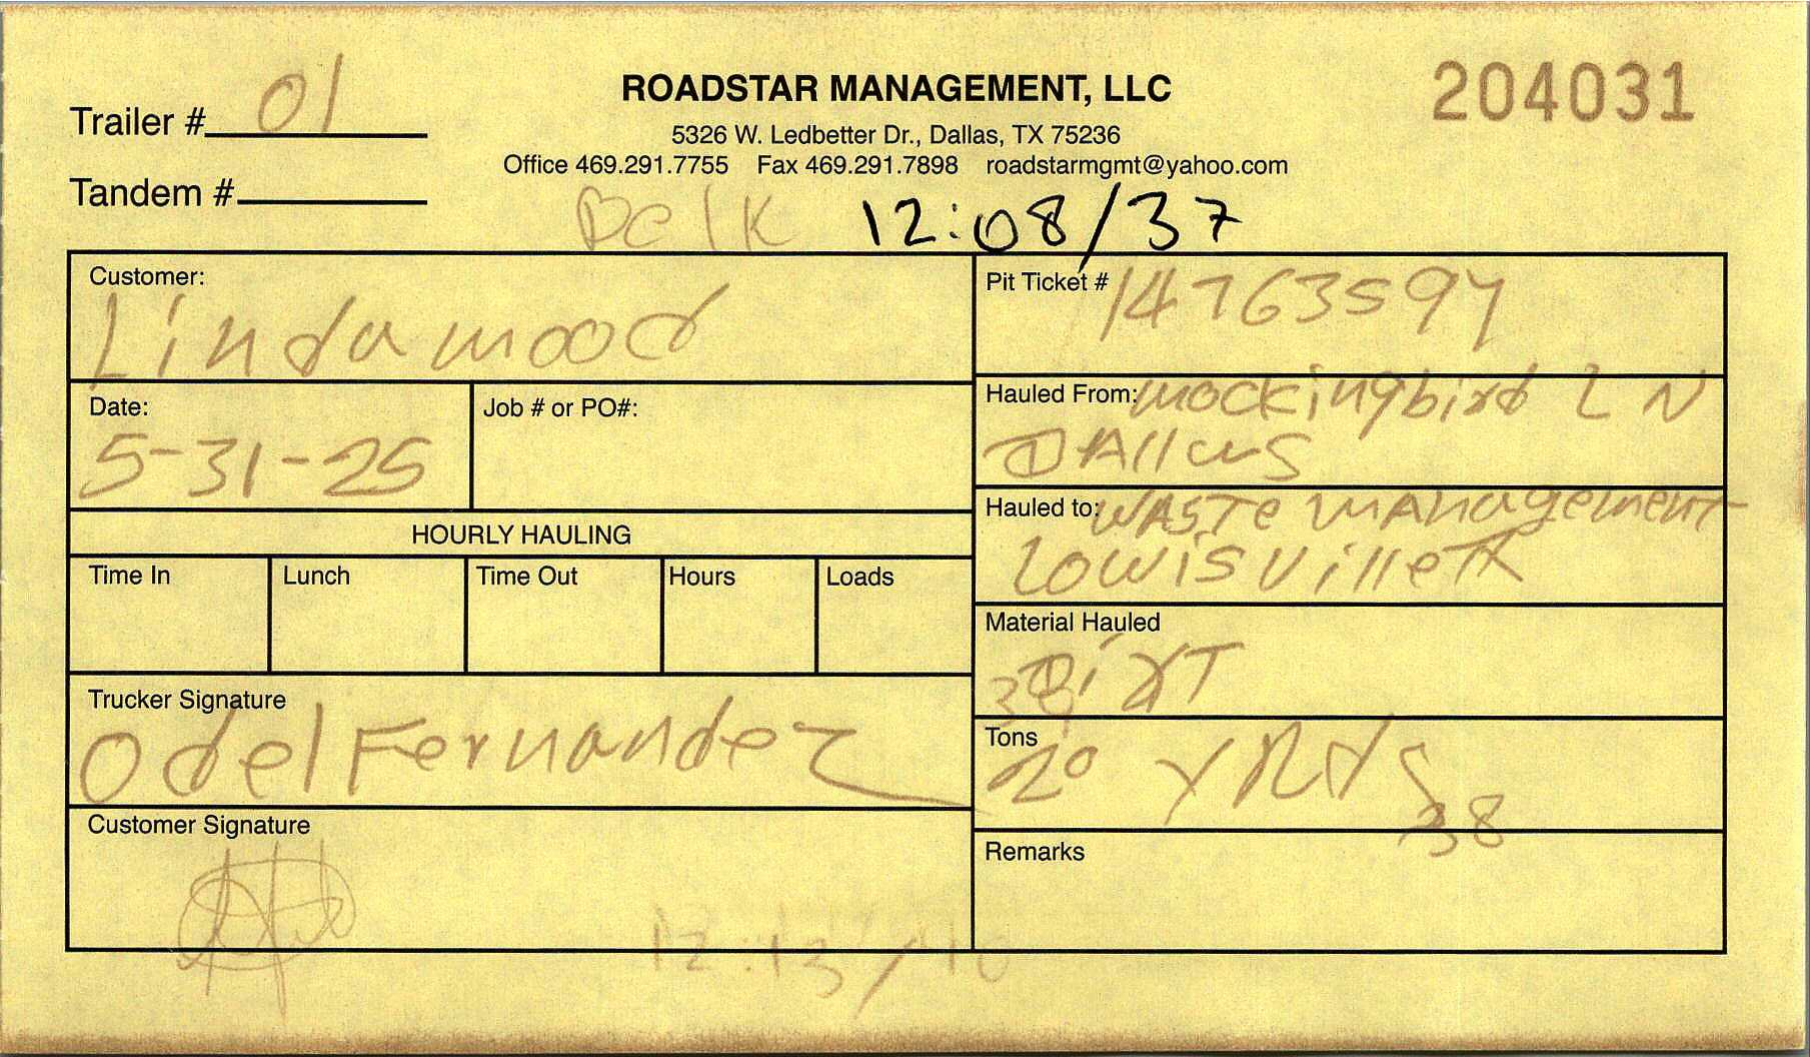 Trailer # 01
ROADSTAR MANAGEMENT, LLC
204031
5326 W. Ledbetter Dr., Dallas, TX 75236
Office 469.291.7755 Fax 469.291.7898 roadstarmgmt@yahoo.com
Tandem #
12:08/37
Customer:
Lindamood
Pit Ticket #
Date:
5-31-25
Job # or PO#:
Hauled From: mockingbird LN
DAllas
HOURLY HAULING
Hauled to: WASTe mAnagement
Lowisville TX
Time In
Lunch
Time Out
Hours
Loads
Material Hauled
DirT
Trucker Signature
Odel Fernandez
Tons
20 YRds
38
Customer Signature
Remarks